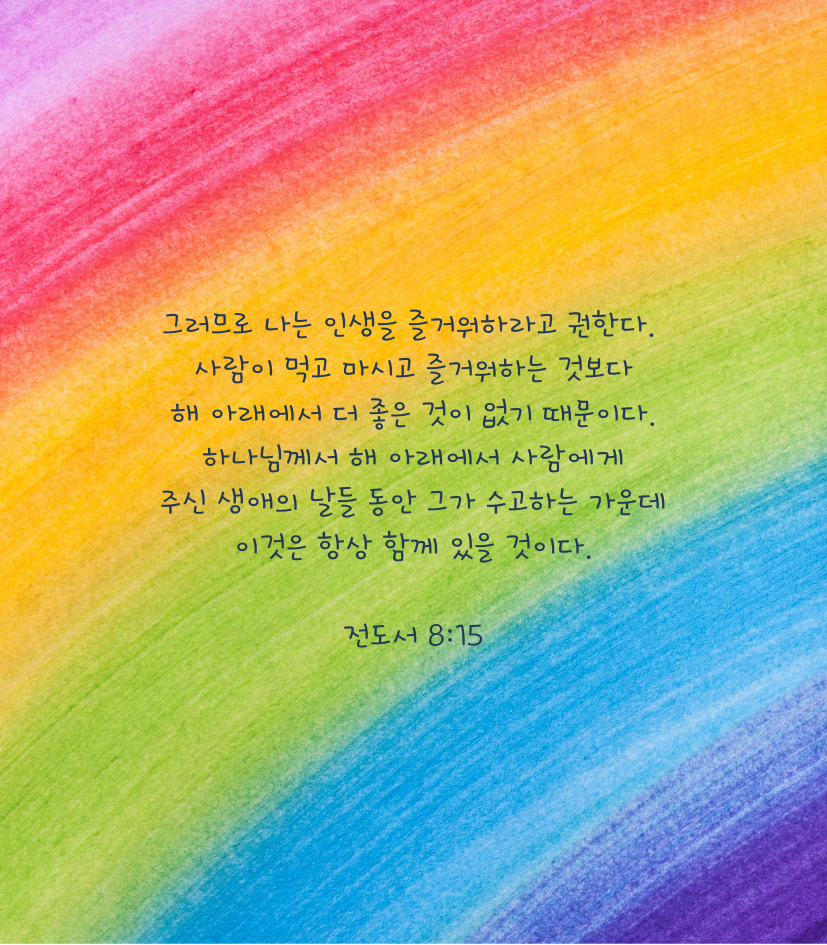 그러므로 나는 인생을 즐거워하라고 권한다.
사람이 먹고 마시고 즐거워하는 것보다
해 아래에서 더 좋은 것이 없기 때문이다.
하나님께서 해 아래에서 사람에게
주신 생애의 날들 동안 그가 수고하는 가운데
이것은 항상 함께 있을 것이다.
전도서 8:15